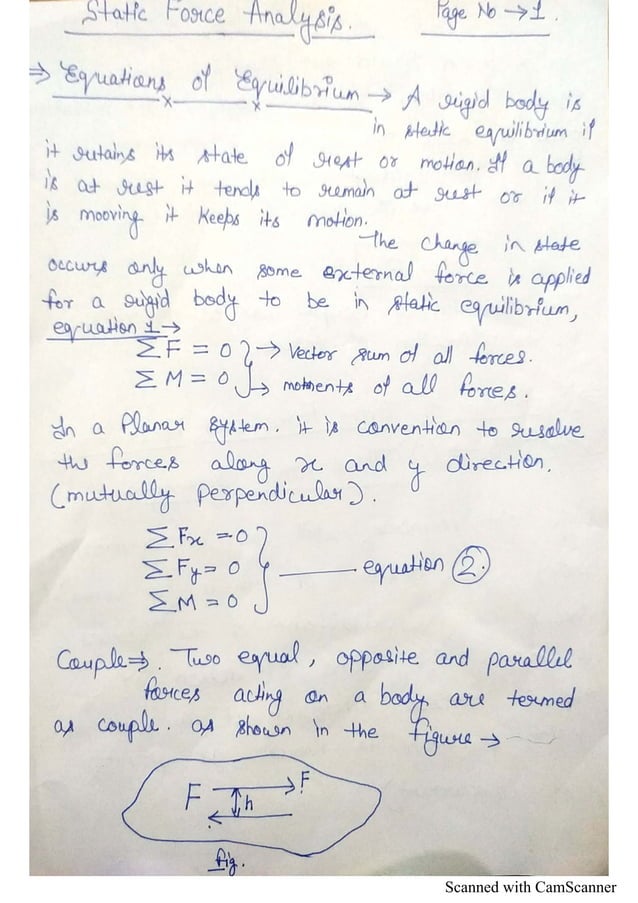 Static Force Analysis. Page No → 1.
⇒ Equations of Equilibrium → A rigid body is
in static equilibrium if
it retains its state of rest or motion. If a body
is at rest it tends to remain at rest or if it
is mooving it keeps its motion.
The change in state
occurs only when some external force is applied
for a rigid body to be in static equilibrium,
equation 1 →
ΣF = 0 } → Vector sum of all forces.
ΣM = 0 } → moments of all forces.
In a Planar system. it is convention to resolve
the forces along x and y direction.
(mutually perpendicular).
ΣFx = 0
ΣFy = 0 } —— equation ②.
ΣM = 0
Couple ⇒. Two equal, opposite and parallel
forces acting on a body are termed
as couple. as shown in the figure →
F F
h
fig.
Scanned with CamScanner